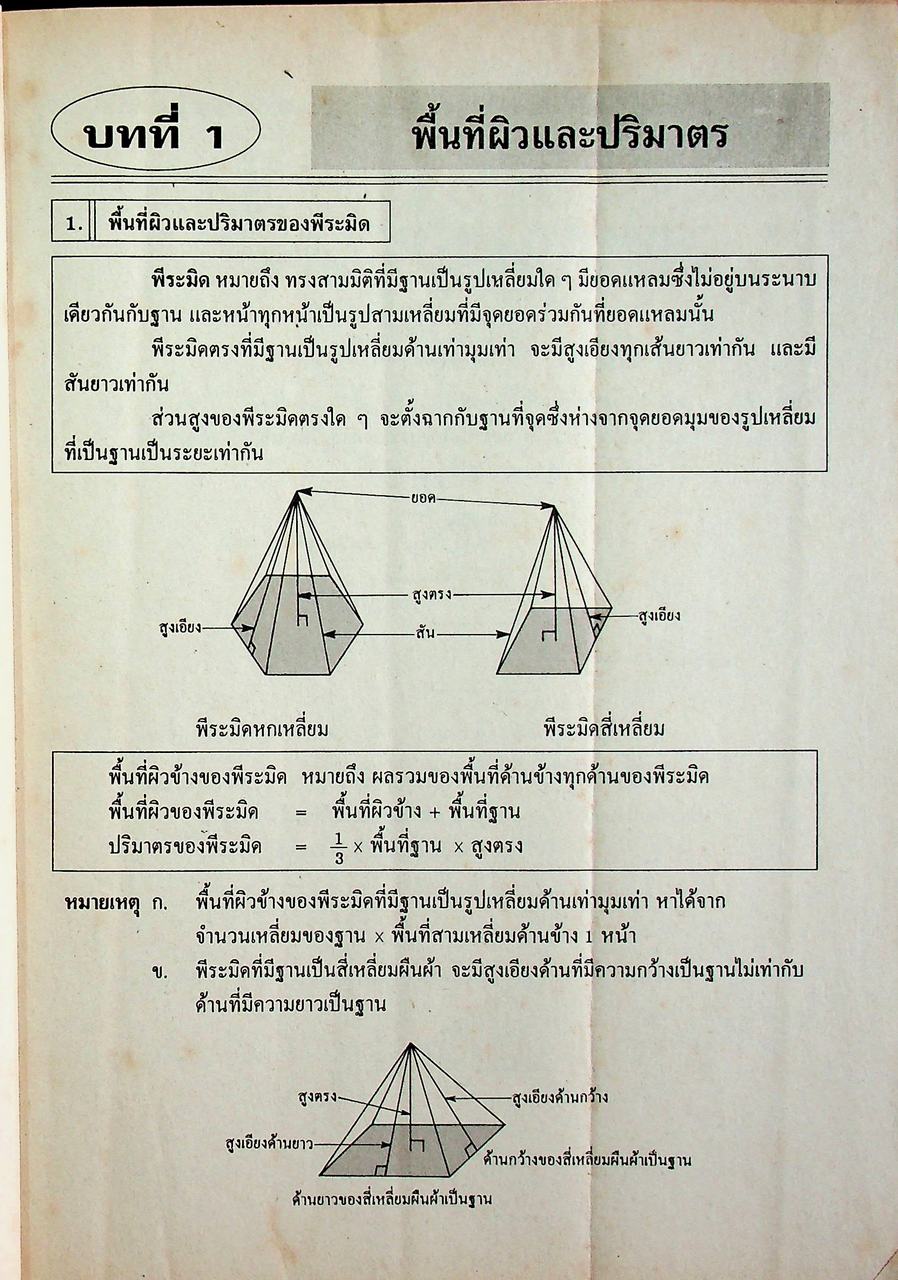 บทที่ 1
พื้นที่ผิวและปริมาตร
1. พื้นที่ผิวและปริมาตรของพีระมิด
พีระมิด หมายถึง ทรงสามมิติที่มีฐานเป็นรูปเหลี่ยมใด ๆ มียอดแหลมซึ่งไม่อยู่บนระนาบ
เดียวกันกับฐาน และหน้าทุกหน้าเป็นรูปสามเหลี่ยมที่มีจุดยอดร่วมกันที่ยอดแหลมนั้น
พีระมิดตรงที่มีฐานเป็นรูปเหลี่ยมด้านเท่ามุมเท่า จะมีสูงเอียงทุกเส้นยาวเท่ากัน และมี
สันยาวเท่ากัน
ส่วนสูงของพีระมิดตรงใด ๆ จะตั้งฉากกับฐานที่จุดซึ่งห่างจากจุดยอดมุมของรูปเหลี่ยม
ที่เป็นฐานเป็นระยะเท่ากัน
ยอด
สูงตรง
สูงเอียง
สูงเอียง
สัน
พีระมิดหกเหลี่ยม
พีระมิดสี่เหลี่ยม
พื้นที่ผิวข้างของพีระมิด หมายถึง ผลรวมของพื้นที่ด้านข้างทุกด้านของพีระมิด
พื้นที่ผิวของพีระมิด = พื้นที่ผิวข้าง + พื้นที่ฐาน
ปริมาตรของพีระมิด = 1/3 × พื้นที่ฐาน × สูงตรง
หมายเหตุ ก. พื้นที่ผิวข้างของพีระมิดที่มีฐานเป็นรูปเหลี่ยมด้านเท่ามุมเท่า หาได้จาก
จำนวนเหลี่ยมของฐาน × พื้นที่สามเหลี่ยมด้านข้าง 1 หน้า
ข. พีระมิดที่มีฐานเป็นสี่เหลี่ยมผืนผ้า จะมีสูงเอียงด้านที่มีความกว้างเป็นฐานไม่เท่ากับ
ด้านที่มีความยาวเป็นฐาน
สูงตรง
สูงเอียงด้านกว้าง
สูงเอียงด้านยาว
ด้านกว้างของสี่เหลี่ยมผืนผ้าเป็นฐาน
ด้านยาวของสี่เหลี่ยมผืนผ้าเป็นฐาน